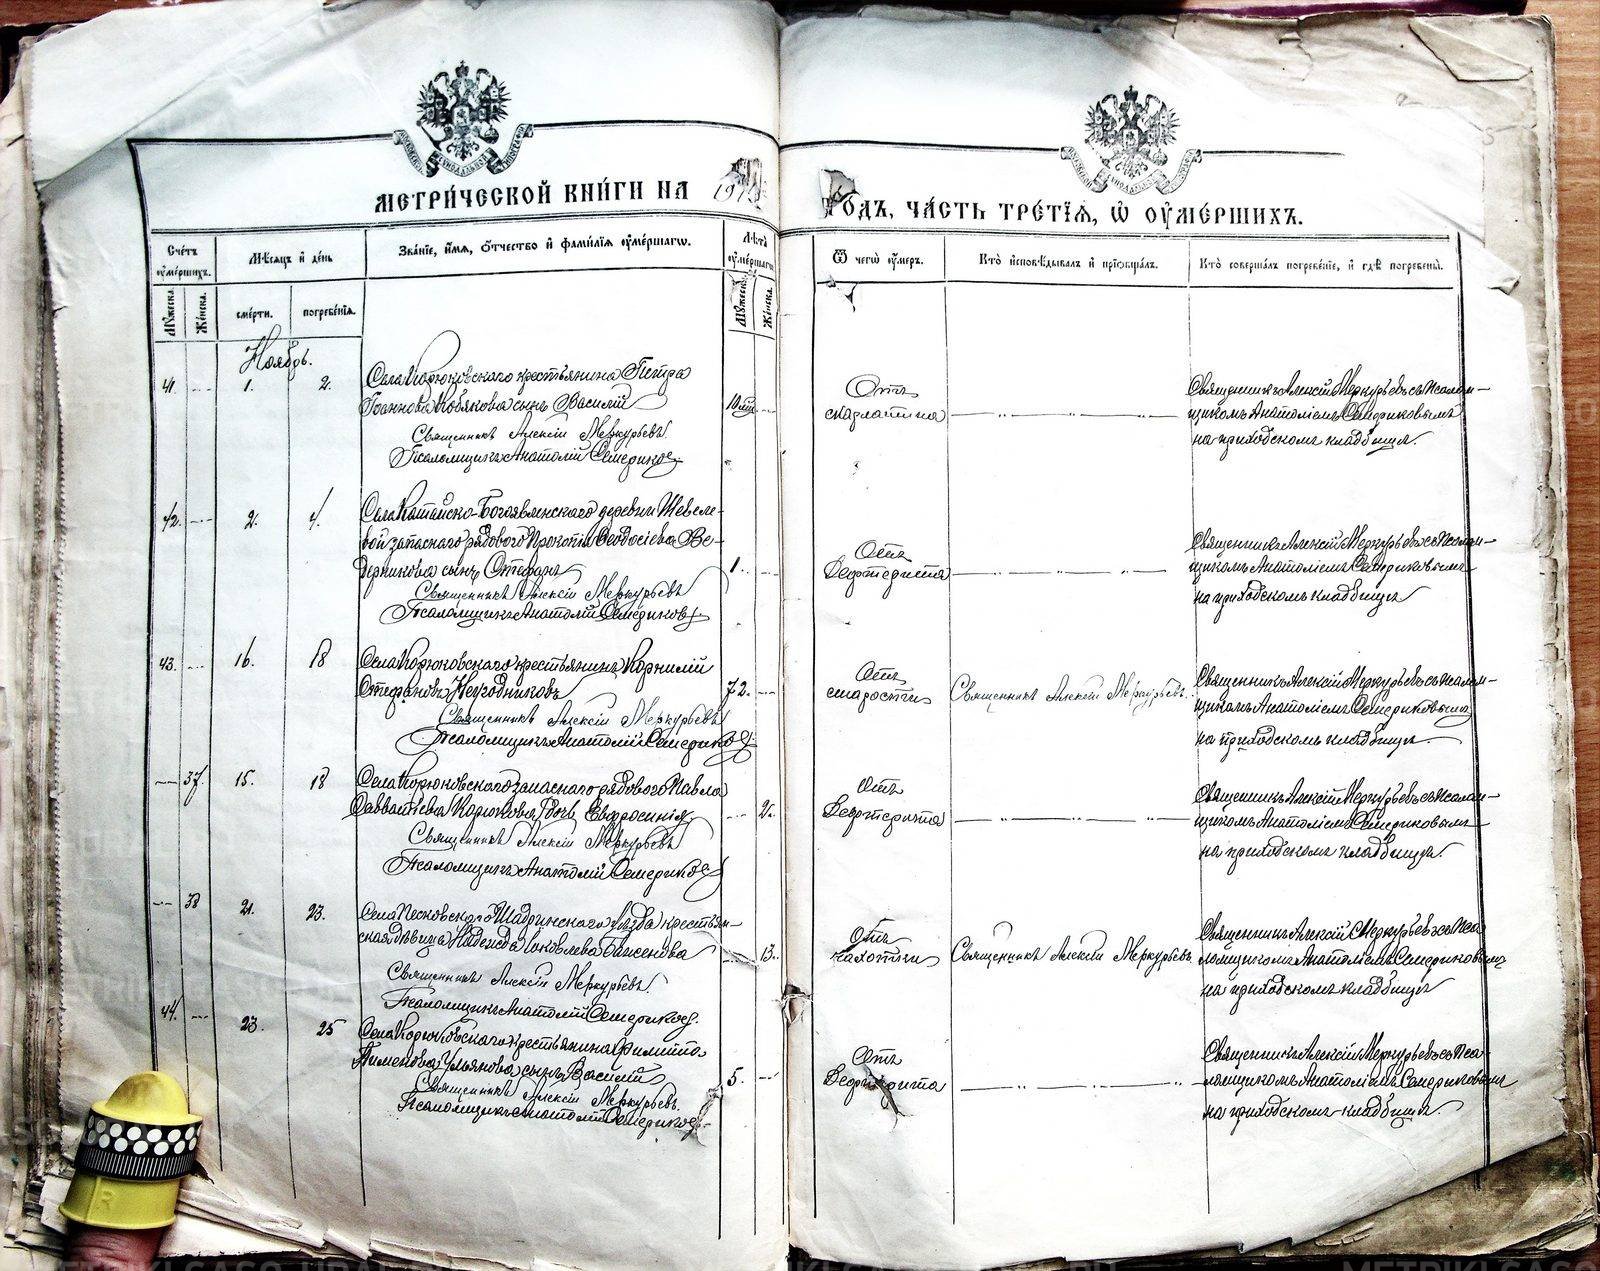 МЕТРИ́ЧЕСКОЙ КНИ́ГИ НА 191
ГОДЪ, ЧА́СТЬ ТРЕ́ТІѦ, Ѽ ОУ҆МЕ́РШИХЪ.
Сче́тъ оу҆ме́ршихъ.
Мѣ́сѧцъ и҆ де́нь
Зва́нїе, и҆́мѧ, ѻ҆́тчество и҆ фами́лїѧ оу҆ме́ршагѡ.
Лѣ́тъ оу҆ме́ршагѡ
Ѿ чегѡ̀ оу҆́меръ.
Кто̀ и҆сповѣ́дывалъ и҆ прїѡбща́лъ.
Кто̀ соверша́лъ погребе́нїе, и҆ гдѣ̀ погребены̀.
Мꙋ́жеска.
Же́нска.
сме́рти.
погребе́нїѧ.
Мꙋ́жеска.
Же́нска.
Ноябрь.
41 1. 2. Села Корюковскаго крестьянина Петра
Іоаннова Кобякова сынъ Василій
Священникъ Алексій Меркурьевъ.
Псаломщикъ Анатолій Семериков
Отъ
скарлатина
Священникъ Алексій Меркурьевъ съ псалом-
щикомъ Анатоліемъ Семериковымъ
на приходскомъ кладбище.
42. 2. 4. Села Катайско-Богоявленскаго деревни Шевеле-
вой запаснаго рядового Прокопія Ѳеодосіева Ве-
дерникова сынъ Стефанъ
Священникъ Алексій Меркурьевъ
Псаломщикъ Анатолій Семериковъ
1.
Отъ
Священникъ Алексій Меркурьевъ съ псалом-
щикомъ Анатоліемъ Семериковымъ
на приходскомъ кладбище
43. 16. 18 Села Корюковскаго крестьянинъ Корнилій
Стефановъ
Священникъ Алексій Меркурьевъ
Псаломщикъ Анатолій Семериков
72.
Отъ
старости
Священникъ Алексій Меркурьевъ.
Священникъ Алексій Меркурьевъ съ псалом-
щикомъ Анатоліемъ Семериковымъ
на приходскомъ кладбище
37 15. 18 Села Корюковскаго запаснаго рядового Павла
Савватіева Корюкова дочь Евфросинія
Священникъ Алексій Меркурьевъ
Псаломщикъ Анатолій Семериков
2.
Отъ
Священникъ Алексій Меркурьевъ съ псалом-
щикомъ Анатоліемъ Семериковымъ
на приходскомъ кладбище.
38 21. 23. Села Песковскаго Шадринскаго уѣзда крестьян-
ская дѣвица Надежда Іаковлева
Священникъ Алексій Меркурьевъ.
Псаломщикъ Анатолій Семериков.
13.
Отъ
чахотки
Священникъ Алексій Меркурьевъ
Священникъ Алексій Меркурьевъ съ пса-
ломщикомъ Анатоліемъ Семериковымъ
на приходскомъ кладбище
44. 23. 25 Села Корюковскаго крестьянина Филиппа
Пименова Ульянова сынъ Василій
Священникъ Алексій Меркурьевъ.
Псаломщикъ Анатолій Семериковъ.
5.
Отъ
Священникъ Алексій Меркурьевъ съ пса-
ломщикомъ Анатоліемъ Семериковымъ
на приходскомъ кладбище.